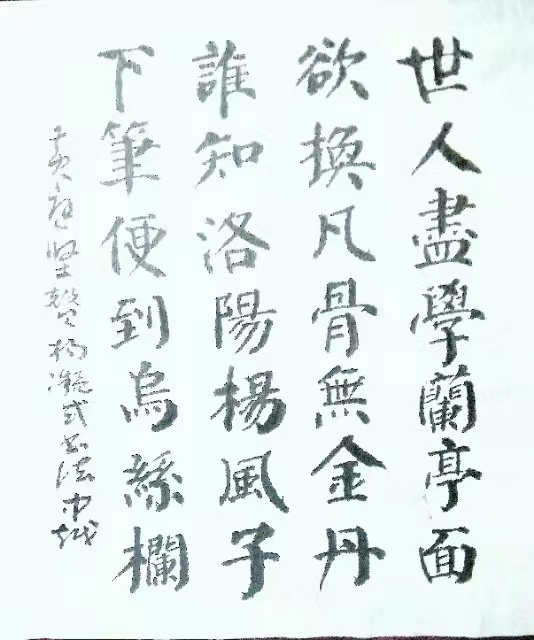 世人盡學蘭亭面
欲換凡骨無金丹
誰知洛陽楊風子
下筆便到烏絲欄
黄庭坚赞杨凝式书法